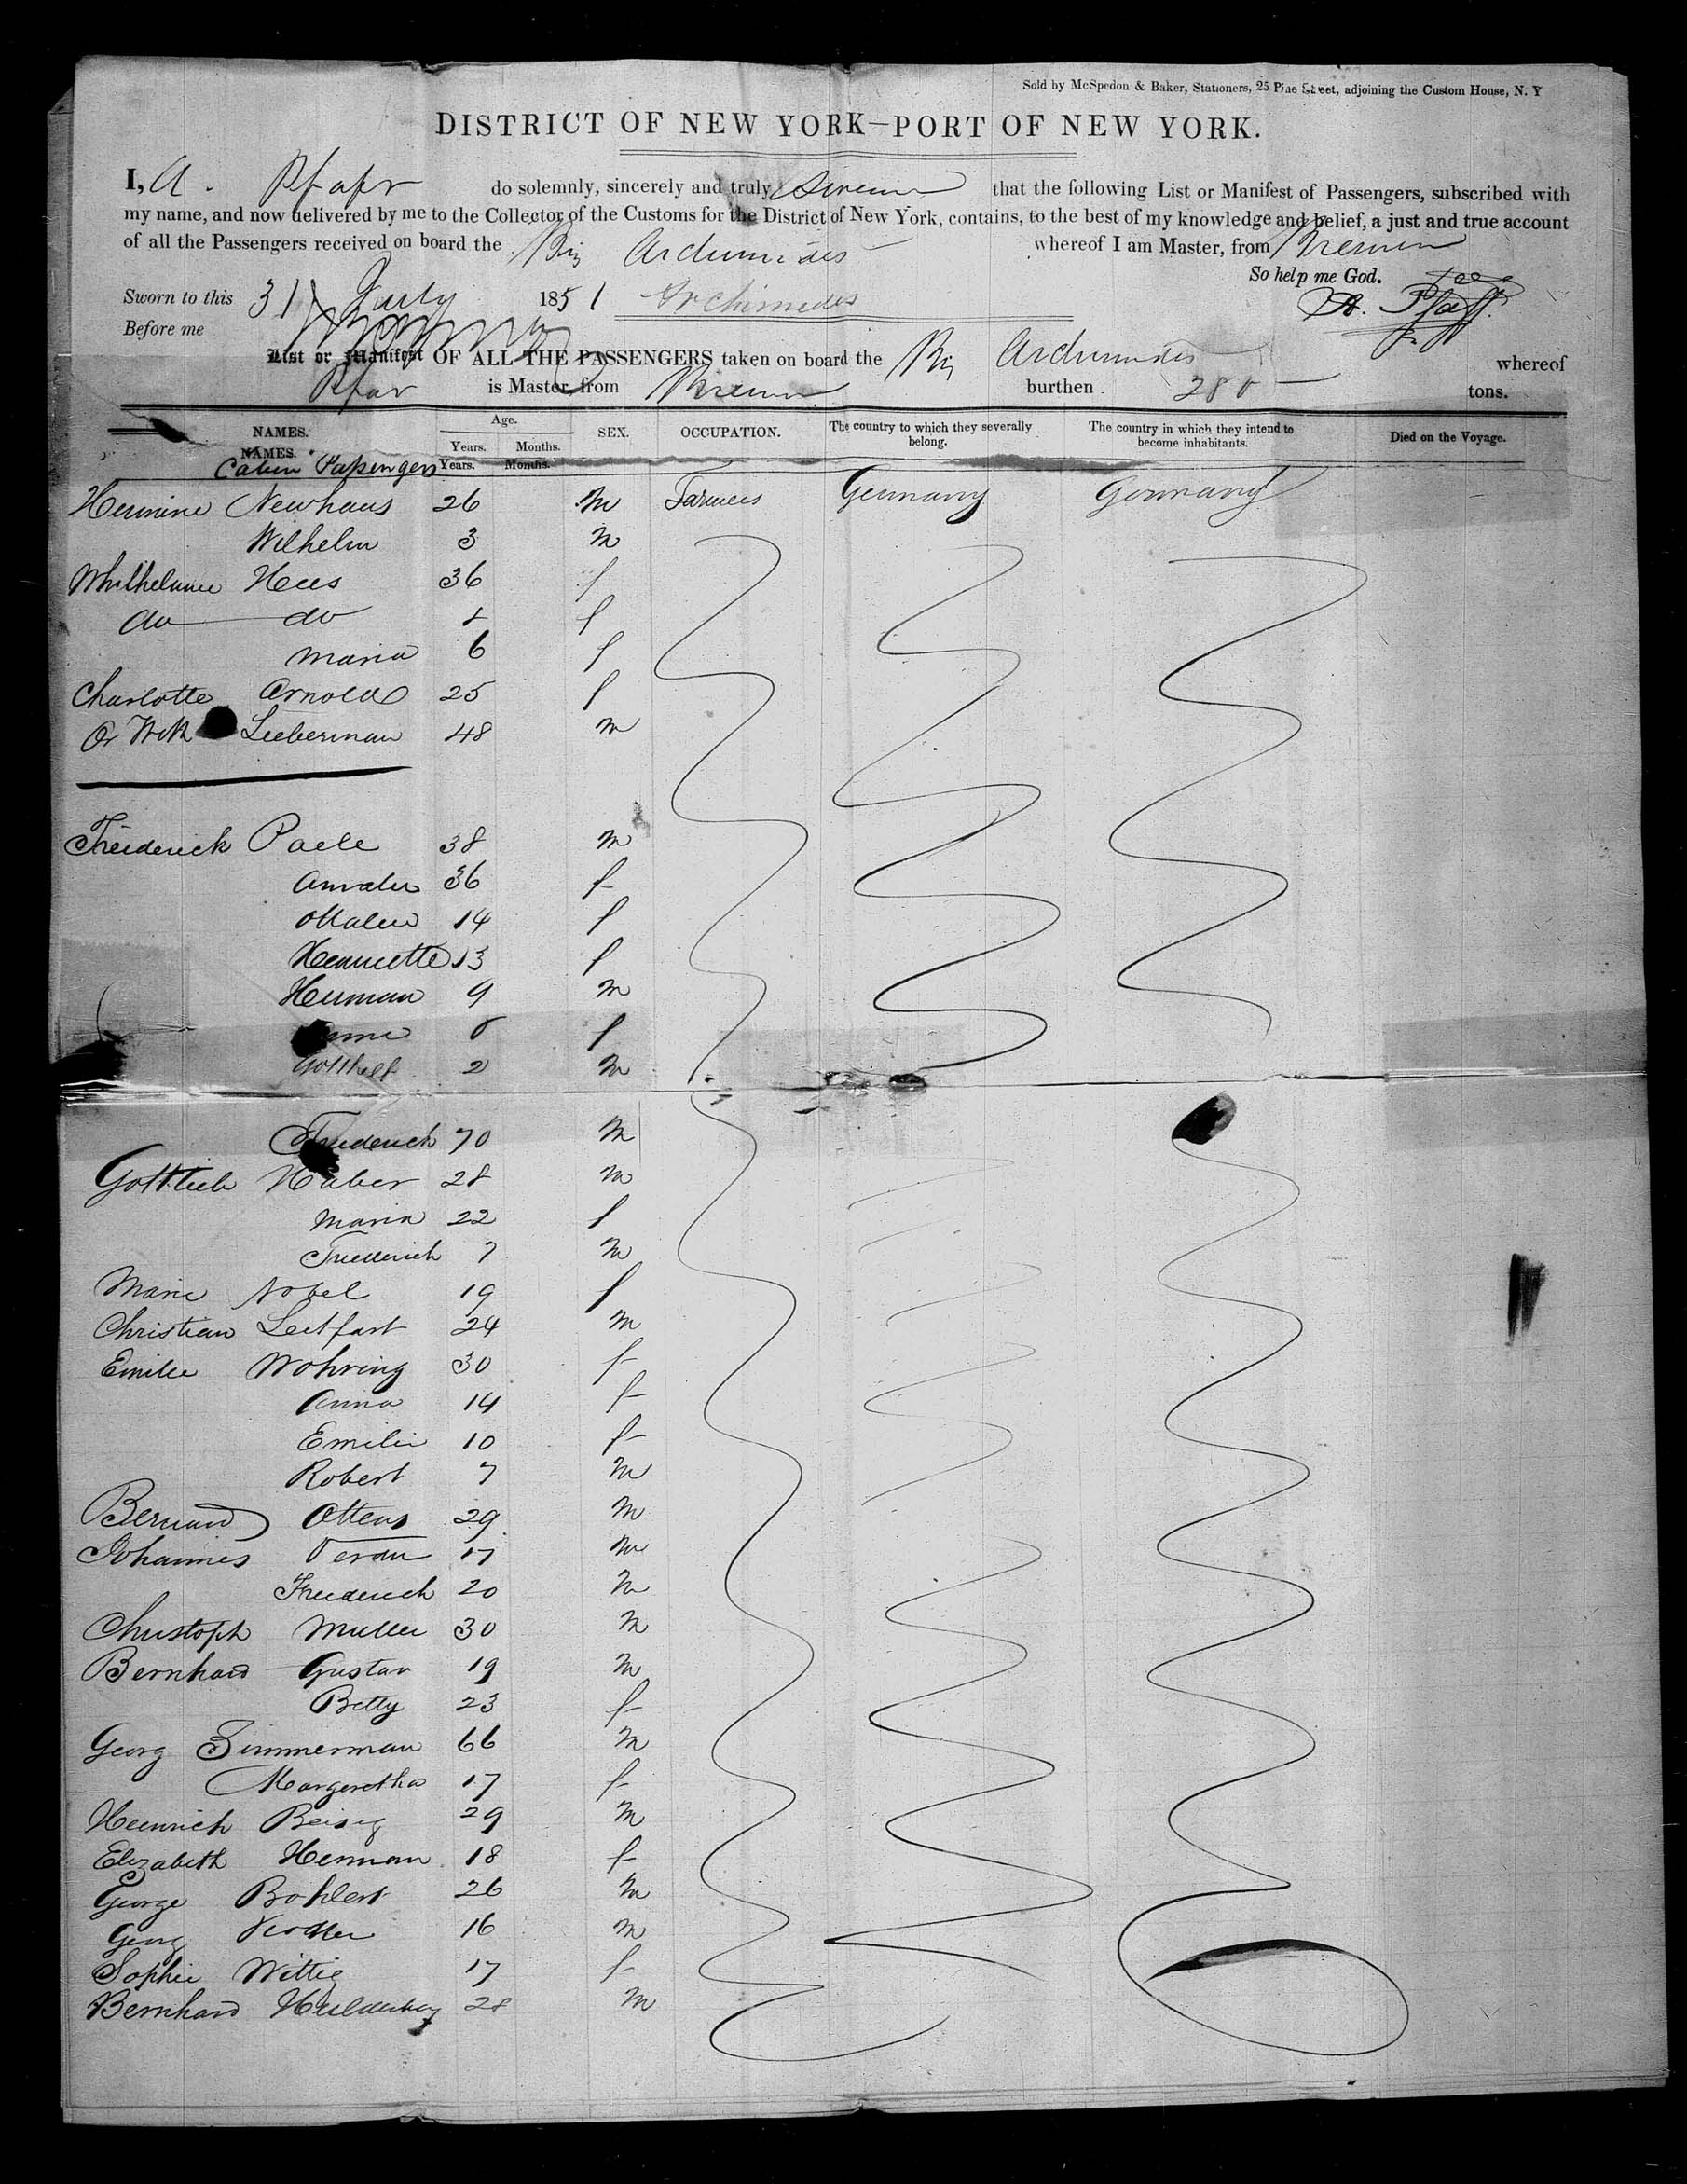 Sold by McSpedon & Baker, Stationers, 25 Pine Street, adjoining the Custom House, N. Y
DISTRICT OF NEW YORK—PORT OF NEW YORK.
I, A. Pfaff do solemnly, sincerely and truly swear that the following List or Manifest of Passengers, subscribed with
my name, and now delivered by me to the Collector of the Customs for the District of New York, contains, to the best of my knowledge and belief, a just and true account
of all the Passengers received on board the Brig Archimedes whereof I am Master, from Bremen
So help me God.
Sworn to this 31 July 1851 Archimedes A. Pfaff
Before me
List or Manifest OF ALL THE PASSENGERS taken on board the Brig Archimedes whereof
is Master, from Bremen burthen 280 tons.
NAMES. Age. SEX. OCCUPATION. The country to which they severally belong. The country in which they intend to become inhabitants. Died on the Voyage.
Years. Months.
NAMES. Years. Months.
Cabin Passengers
Hermine Newhaus 26 m Farmers Germany Germany
Wilhelm 3 m
Hees 36 f
do do f
Maria 6 f
Charlotte Arnold 25 f
Lieberman 48 m
Freiderick 38 m
36 f
14 f
13 f
Herman 9 m
f
Gotthelf 2 m
Friederich 70 m
Gottlieb Haber 28 m
Maria 22 f
Friederich 7 m
Marie Nobel 19 f
Christian 24 m
Emilie Wohring 30 f
Anna 14 f
Emilie 10 f
Robert 7 m
Bernard Ottens 29 m
Johannes 17 m
Friederich 20 m
Christoph Muller 30 m
Bernhard Gustav 19 m
Betty 23 f
Georg Zimmerman 66 m
Margeretha 17 f
Heinrich 29 m
Elizabeth Herman 18 f
George Bohlert 26 m
Georg 16 m
Sophie Wittig 17 f
Bernhard 28 m